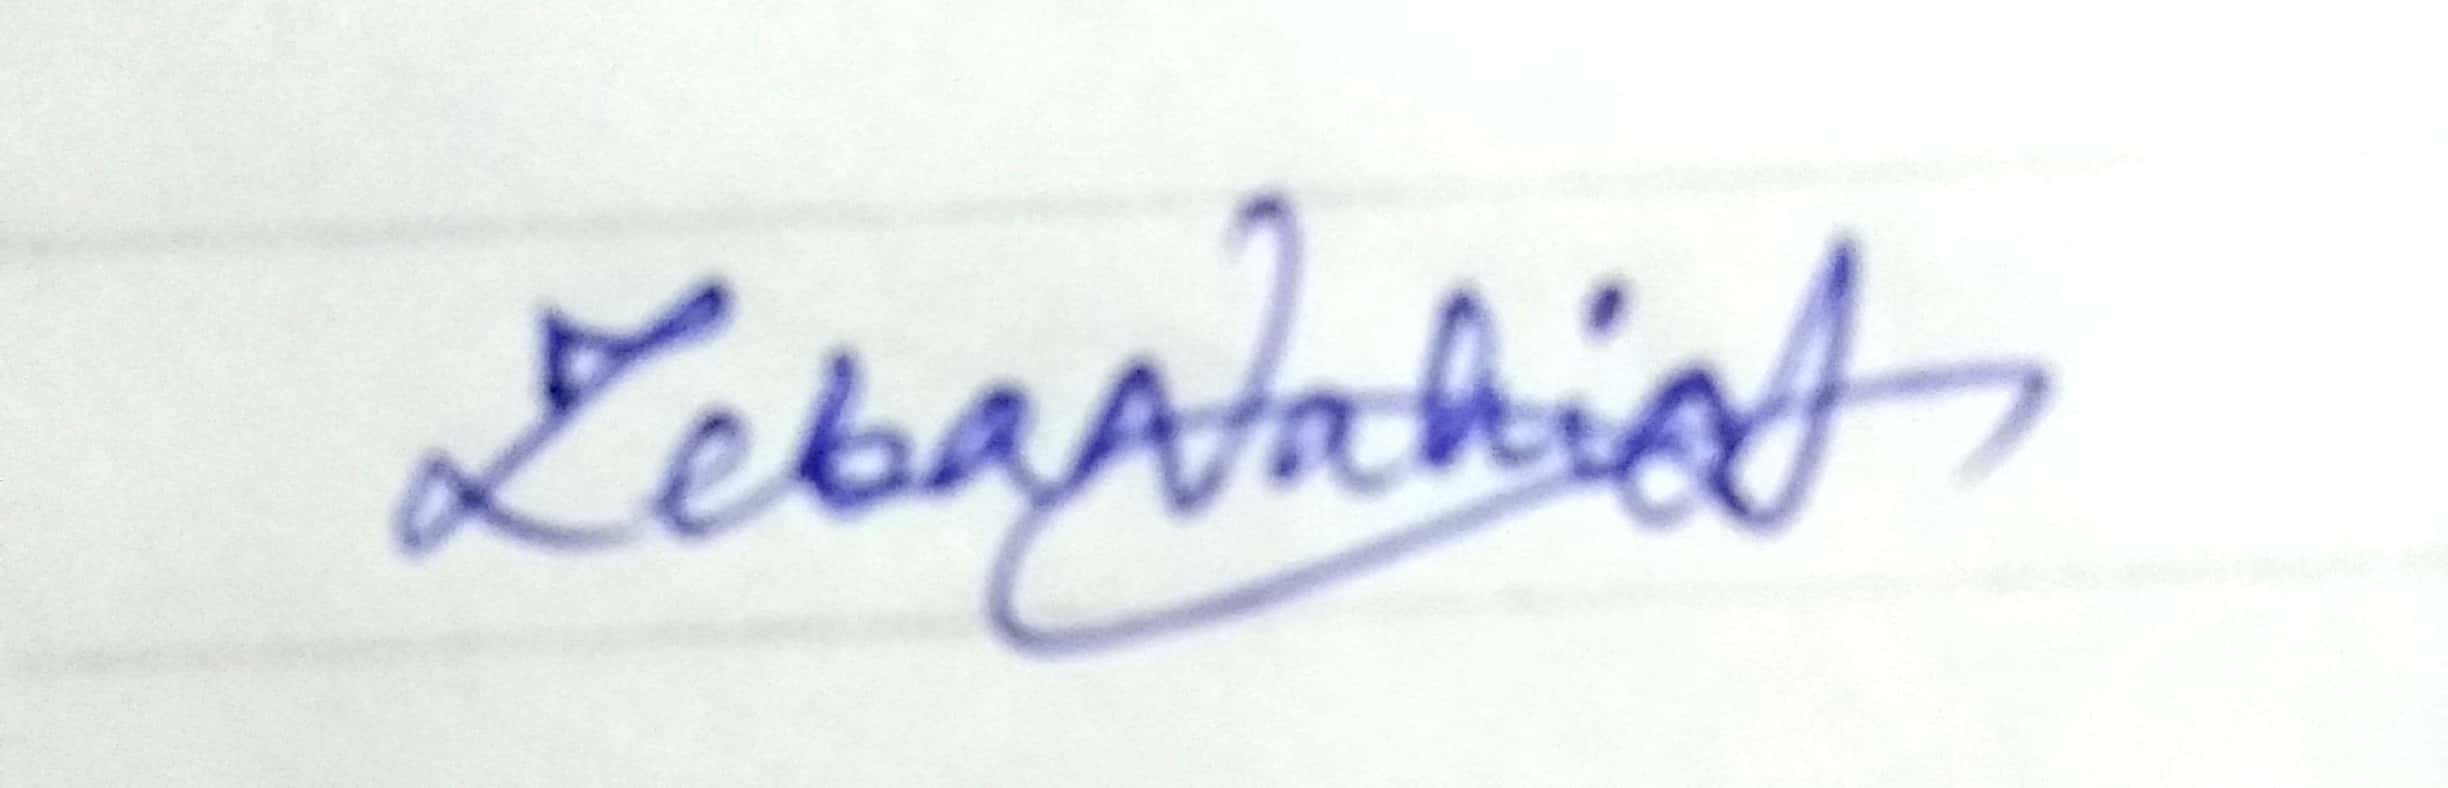 Zeba Nahid